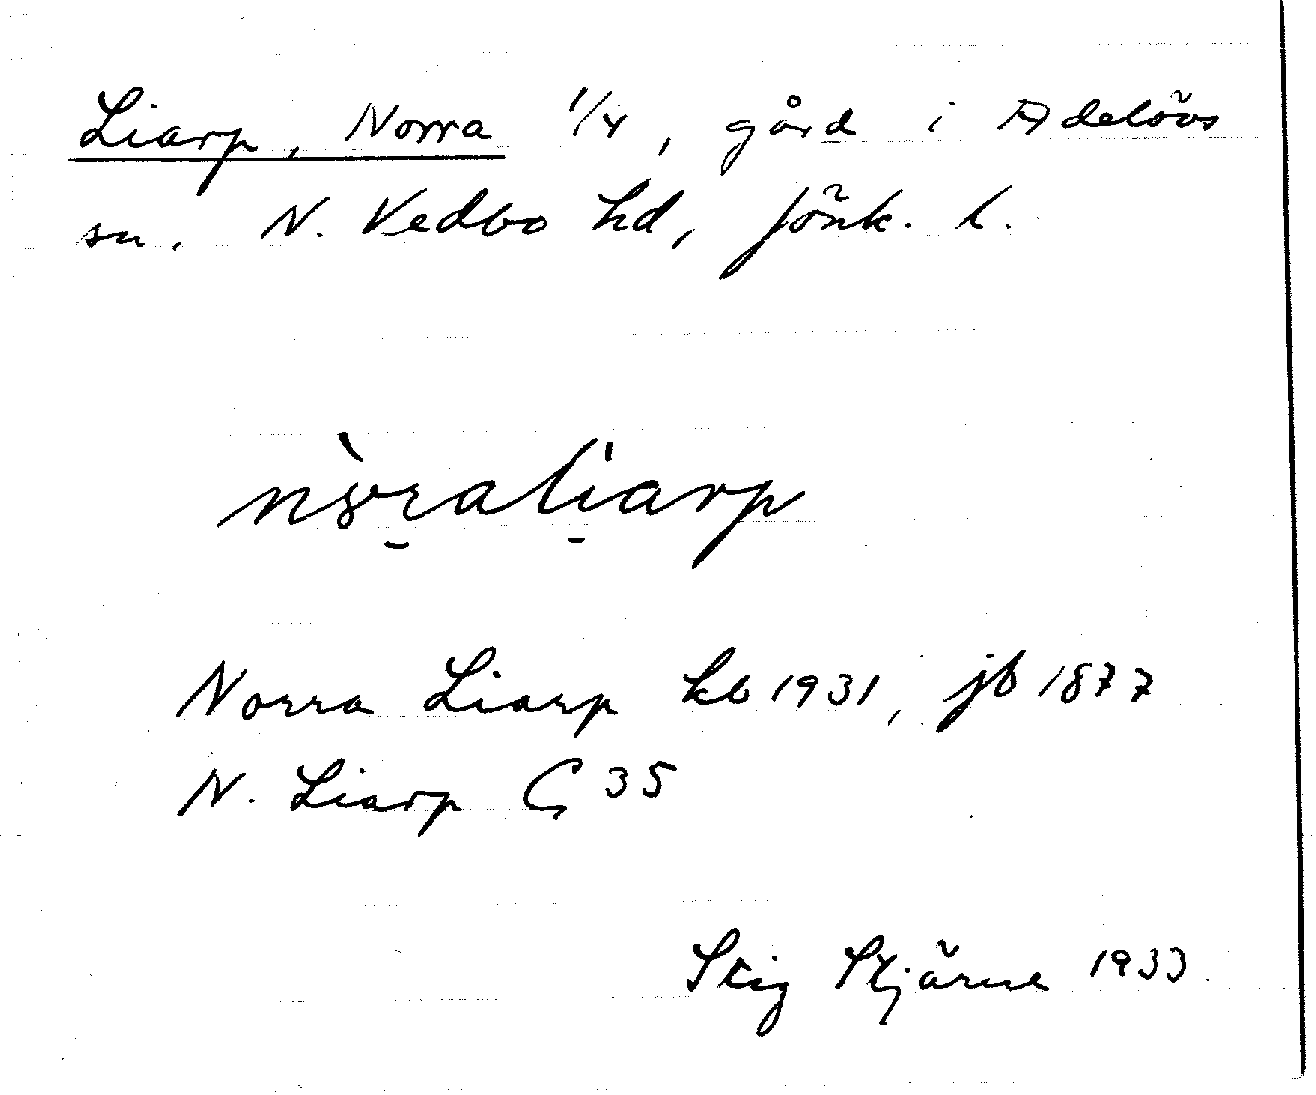 Liarp, Norra 1/4, gård i Adelövs
sn. N. Vedbo hd, Jönk. l.
Norra Liarp kb 1931, jb 1877
N. Liarp G 35
Stig Stjärne 1933